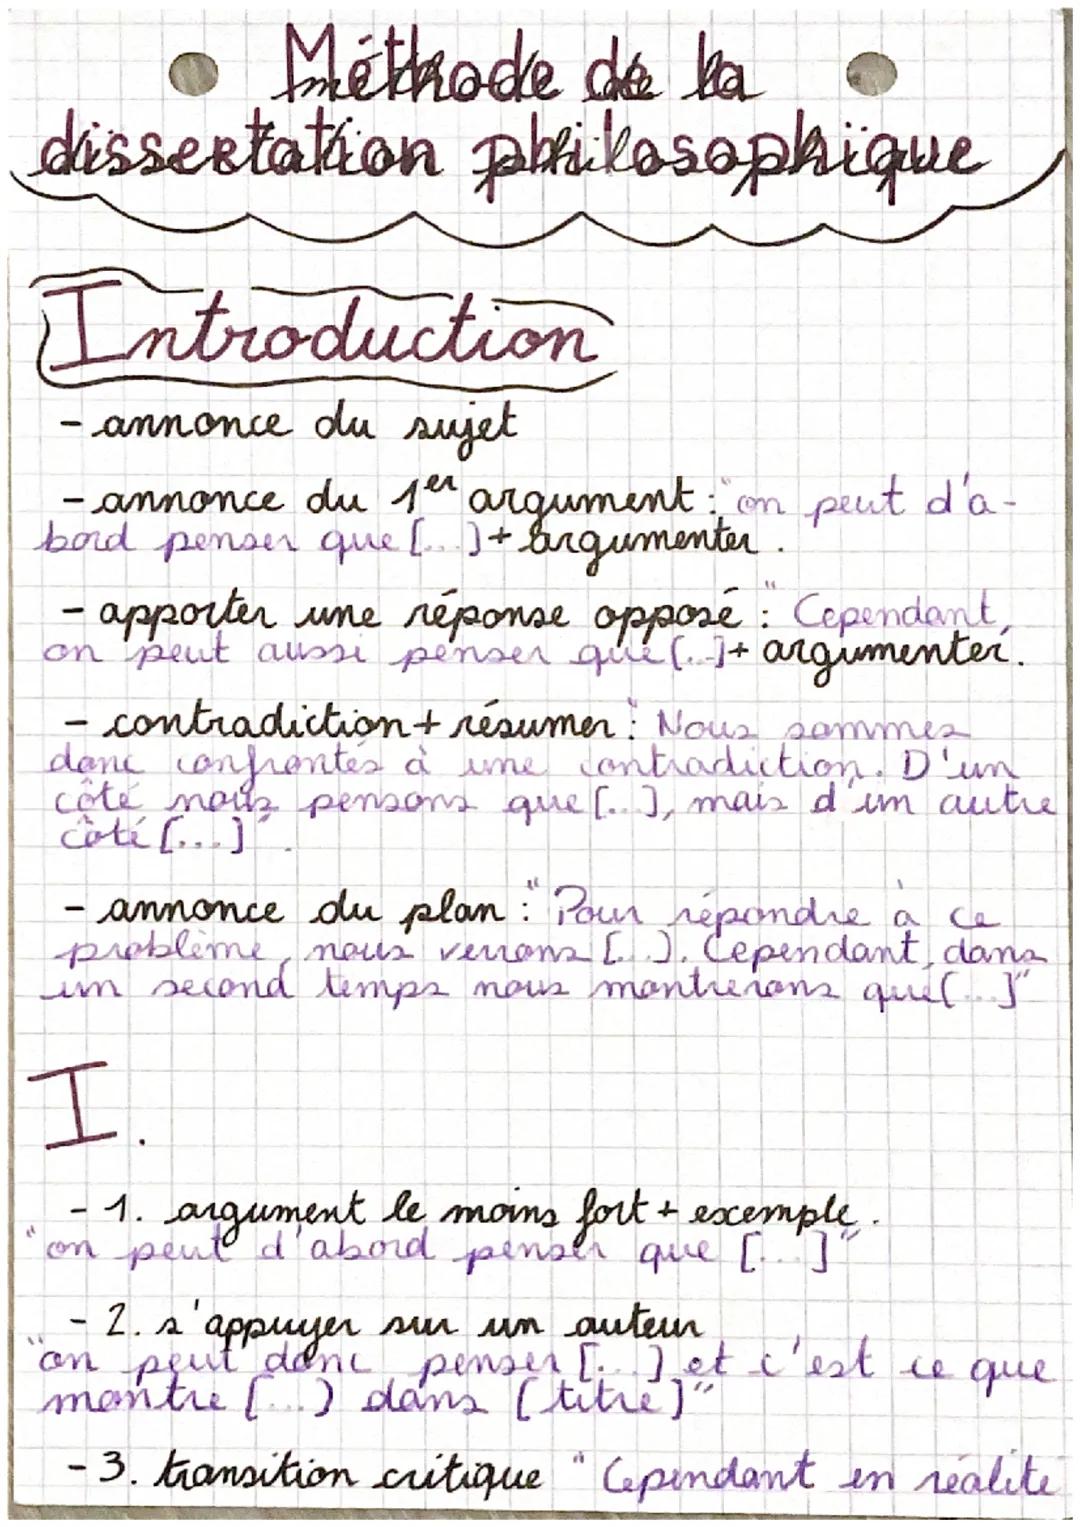 Méthode de la
dissertation philosophique
Introduction
- annonce du sujet
- annonce du 1er argument : "on peut d'a-
bord penser que [...] + argumenter.
- apporter une réponse opposé : "Cependant,
on peut aussi penser que [...] + argumenter.
- contradiction + résumer : "Nous sommes
donc confrontés à une contradiction. D'un
côté nous pensons que [...], mais d'un autre
côté [...]".
- annonce du plan : "Pour répondre à ce
problème, nous verrons [...]. Cependant, dans
un second temps nous montrerons que [...]"
I.
- 1. argument le moins fort + exemple.
"on peut d'abord penser que [...]"
- 2. s'appuyer sur un auteur
"on peut donc penser [...] et c'est ce que
montre [...) dans [titre]"
- 3. transition critique "Cependant en réalité